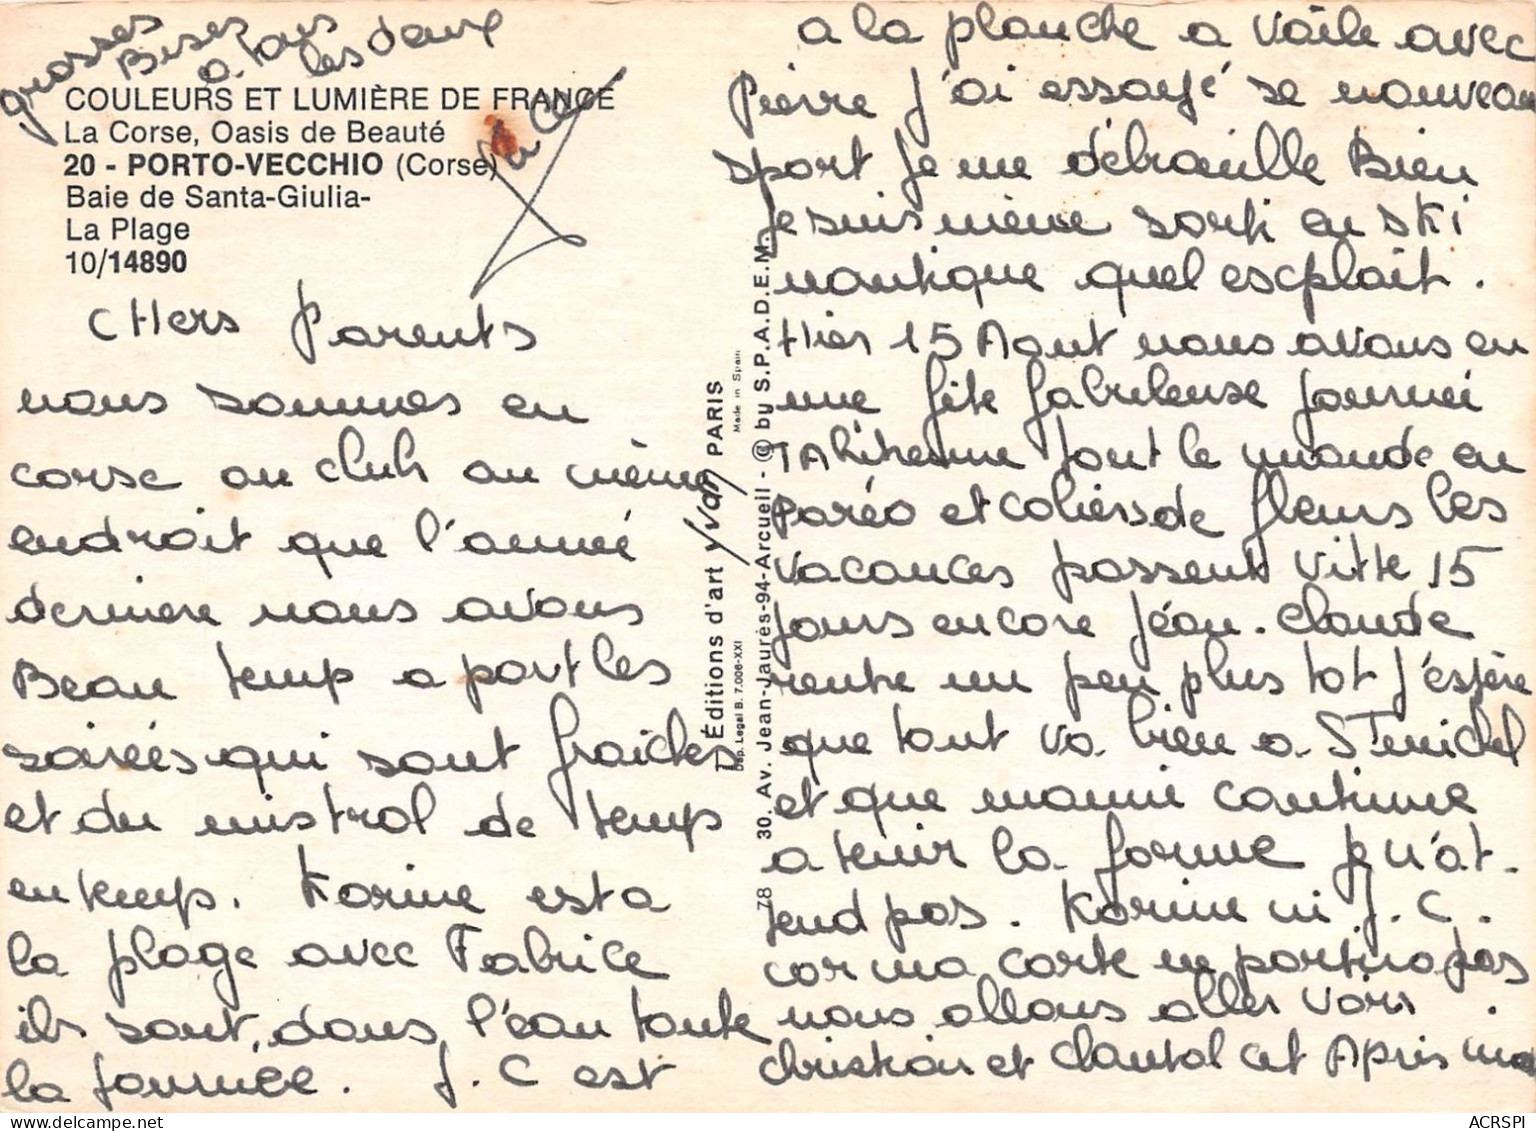 grosses
Bises
a tous
les deux
COULEURS ET LUMIÈRE DE FRANCE
La Corse, Oasis de Beauté
20 - PORTO-VECCHIO (Corse)
Baie de Santa-Giulia-
La Plage
10/14890
CHers Parents
nous sommes en
corse au club au même
endroit que l'année
derniere nous avons
Beau temp a part les
soirées qui sont fraiches
et du mistral de temp
en temp. Karine est a
la plage avec Fabrice
ils sont dans l'eau toute
la journée. J. C est
D Éditions d'art Yvan PARIS
Dép. Legal B. 7.006-XXI
Made in Spain
78 30. Av. Jean-Jaurès-94-Arcueil - @ by S.P.A.D.E.M.
a la planche a voile avec
Pierre J'ai essayé se nouveau
sport Je me débrouille Bien
Je suis même sorti en ski
nautique quel escploit.
Hier 15 Aout nous avons eu
une fête fabuleuse journée
TAhitienne tout le monde en
paréo et coliers de fleurs les
vacances passent vitte 15
jours encore Jean-Claude
rentre un peu plus tot J'éspère
que tout va bien a ST michel
et que mamie continue
a tenir la forme Je n'at-
tend pas. Karine ni J. C.
car ma carte en partira pas
nous allons aller voir
christian et chantal cet Après ma
ACRSPI